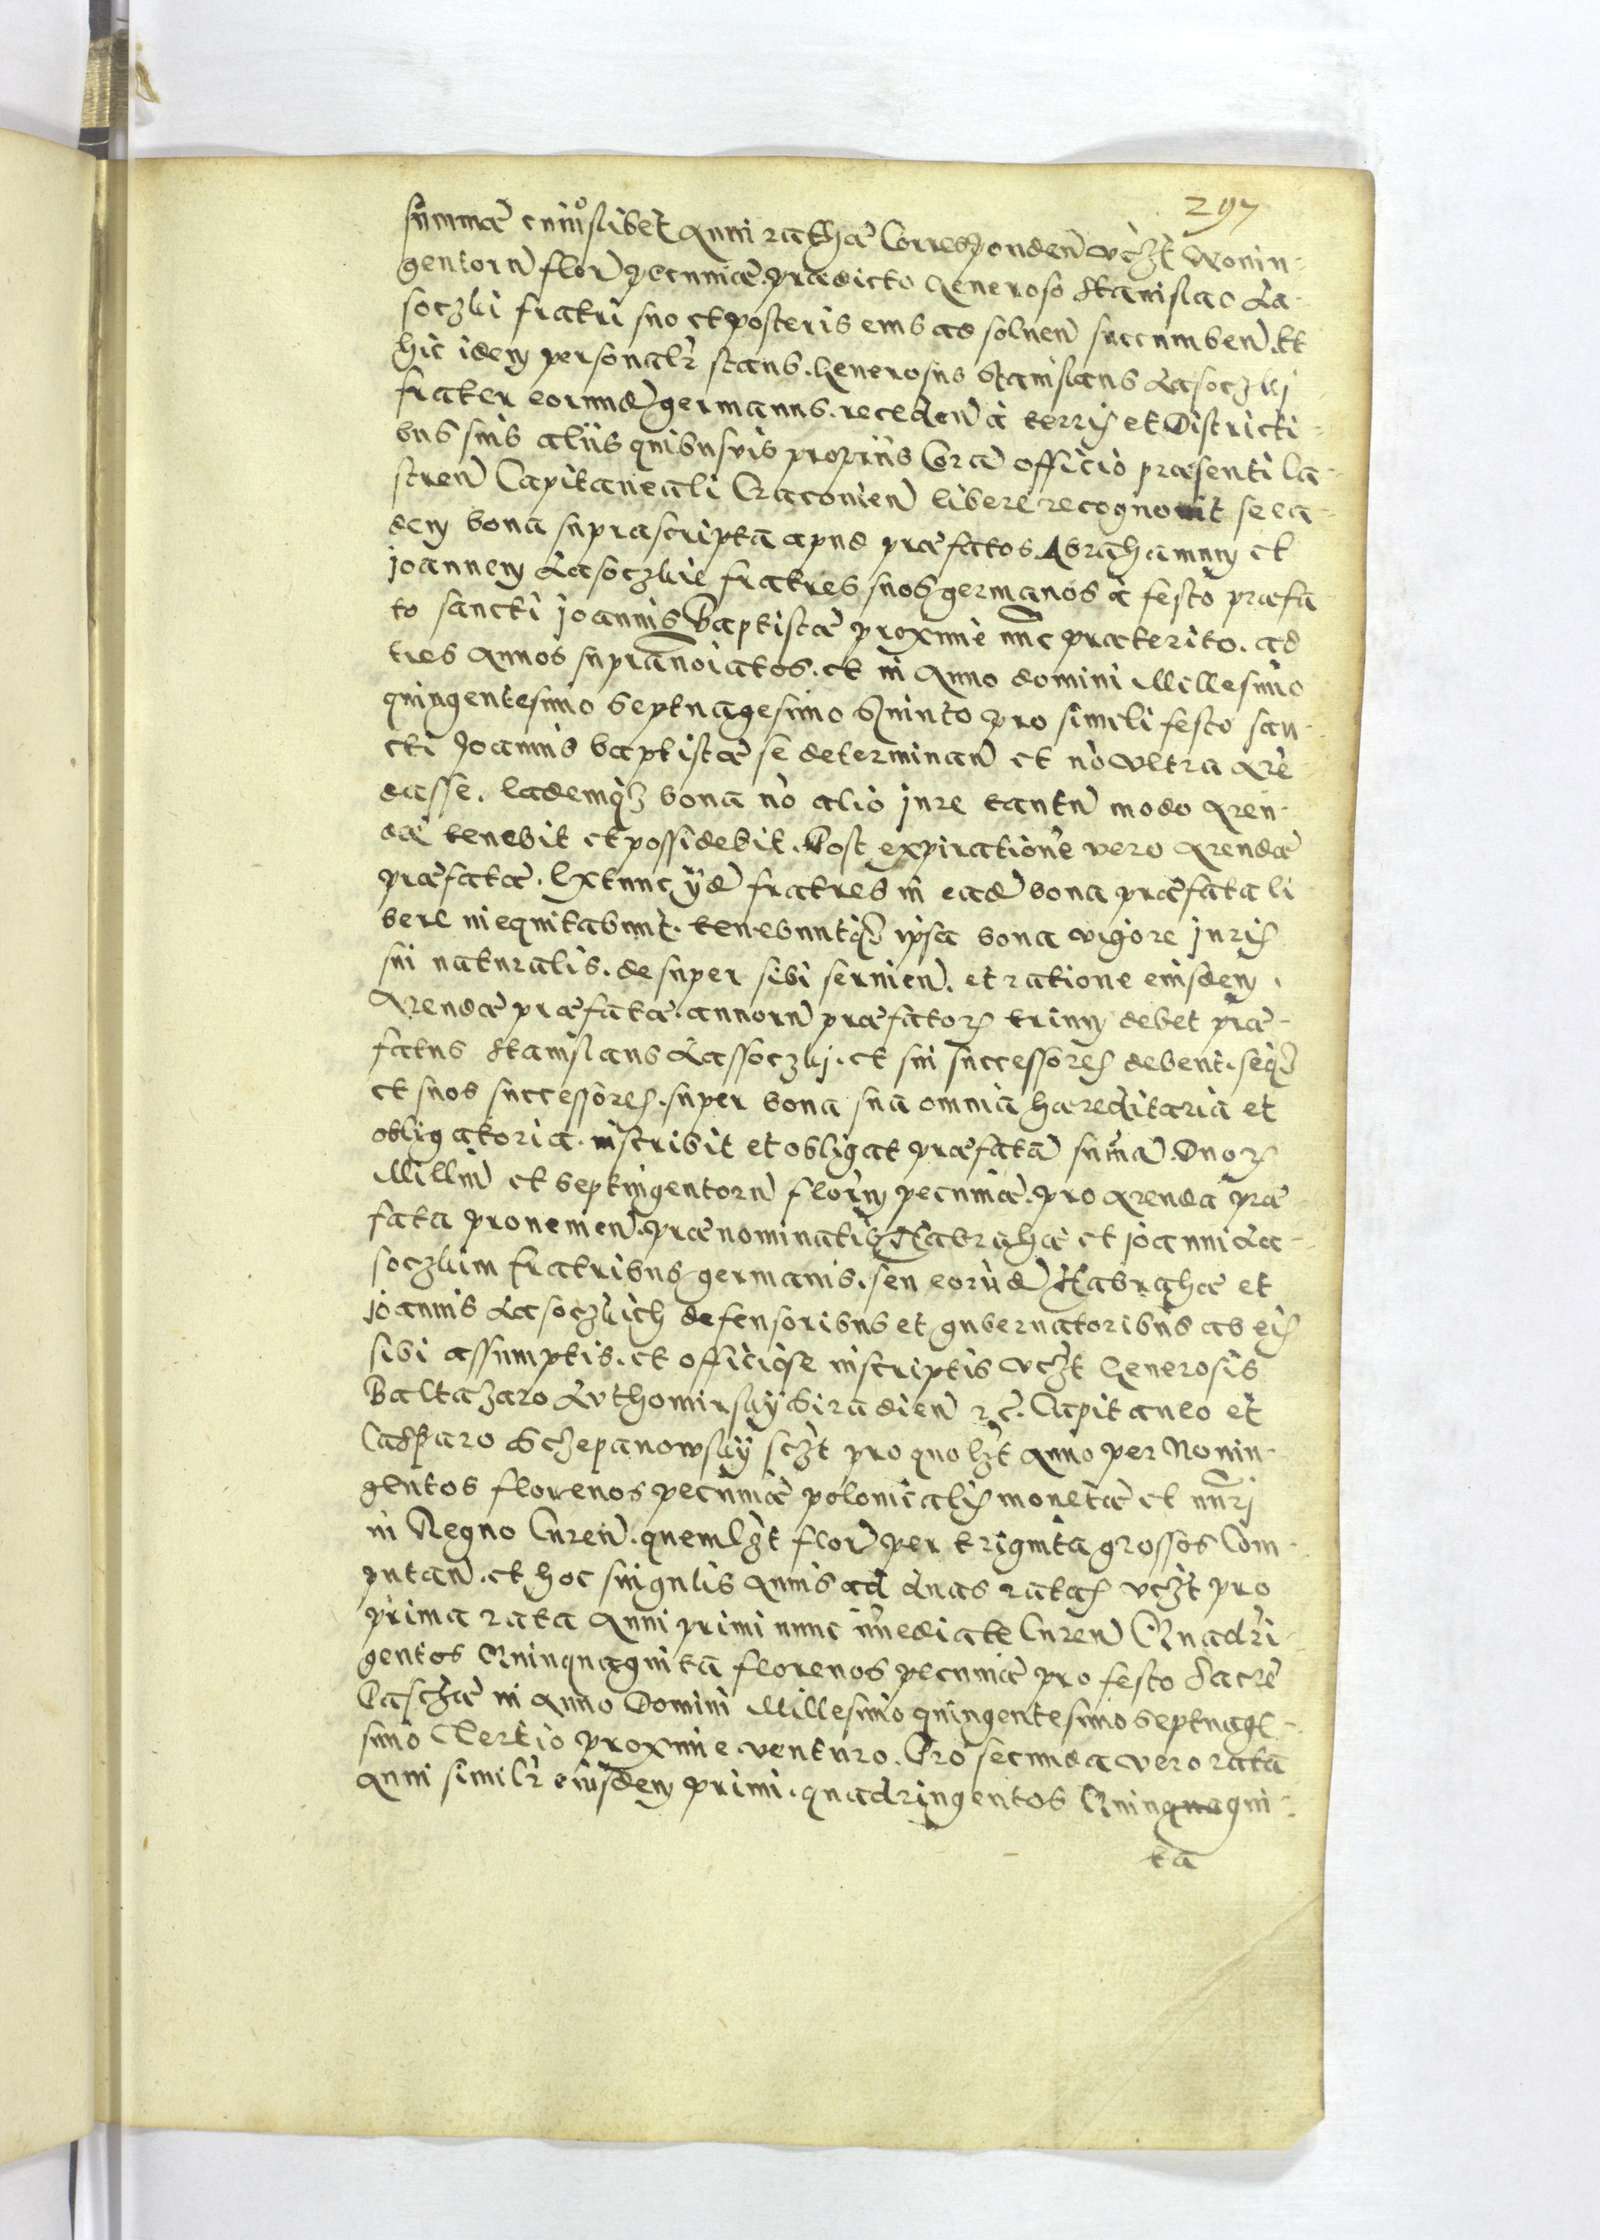 297
summæ cuiuslibet Anni rathæ Corresponden̄ vcʒt Nonin-
gentorū flor̄ pecuniæ. prædicto Generoso Stanislao La-
soczki fratri suo et posteris eius ad soluen̄ succumben̄. Et
hic idem personalr̄ stans. Generosus Stanislaus Lasoczkj
frater eorundē germanus. receden̄ à terris et Districti-
bus suis aliis quibusvis propriis Corā officio præsenti Ca-
stren̄ Capitaneali Cracouien̄ libere recognouit se ea-
dem bona suprascripta apud præfatos Abrahamum et
joannem Lasoczkie fratres suos germanos à festo præfa
to sancti joannis Baptistæ proxime nūc præterito. ad
tres Annos supranoīatos. et in Anno domini Millesimo
quingentesimo Septuagesimo Quinto pro simili festo san-
cti Joannis baptistæ se determinan̄ et nō vltra Arē-
dasse. Eademqʒ bona nō alio jure tantū modo Aren-
dæ tenebit et possidebit. Post expirationē vero Arendæ
præfatæ. Extunc ijdē fratres in eadē bona præfata li
bere inequitabunt. tenebuntqʒ ipsa bona vigore juris
sui naturalis. desuper sibi seruien̄. et ratione eiusdem.
Arendæ præfatæ. annorū præfatorʒ trium debet præ-
fatus Stanislaus Lassoczkj. et sui successores debent. seqʒ
et suos successores. super bona sua omnia hæreditaria et
obligatoria. inscribit et obligat præfatā sum̄ā. Duorʒ
Milliū et septingentorū florin̄ pecuniæ. pro Arenda præ
fata prouenien̄. prænominatis Habrahæ et joanni La-
soczkim fratribus germanis. seu eorūdē Habrahæ et
joannis Lasoczkich defensoribus et gubernatoribus ab eis
sibi assumptis. et officiose inscriptis vcʒt Generosis
Baltazaro Luthomirskÿ Siradien̄ ꝛc̄. Capitaneo et
Casparo Sczepanowskÿ scʒt pro quolʒt Anno per Nonin-
gentos florenos pecuniæ polonicalis monetæ et nūrj
in Regno Curen̄. quemlʒt flor̄ per triginta grossos Com-
putan̄. et hoc singulis Annis ad duas ratas vcʒt pro
prima rata Anni primi nunc im̄ediate Curen̄ Quadri-
gentos Quinquaginta florenos pecuniæ pro festo Sacrē
Paschæ in Anno Domini Millesimo quingentesimo Septuage-
simo Tertio proxime venturo. Pro secunda vero rata
Anni similr̄ eiusdem primi. quadringentos Quinquagin-
ta